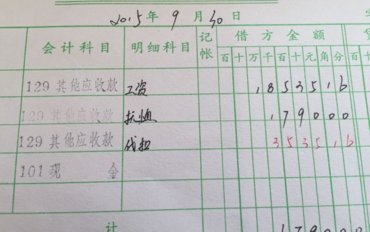 2015年9月30日
会计科目 明细科目 记帐 借方金额
百十万千百十元角分 百十
129 其他应收款 工资 1853516
129 其他应收款 抚恤 179000
129 其他应收款 代扣 353516
101 现金
计